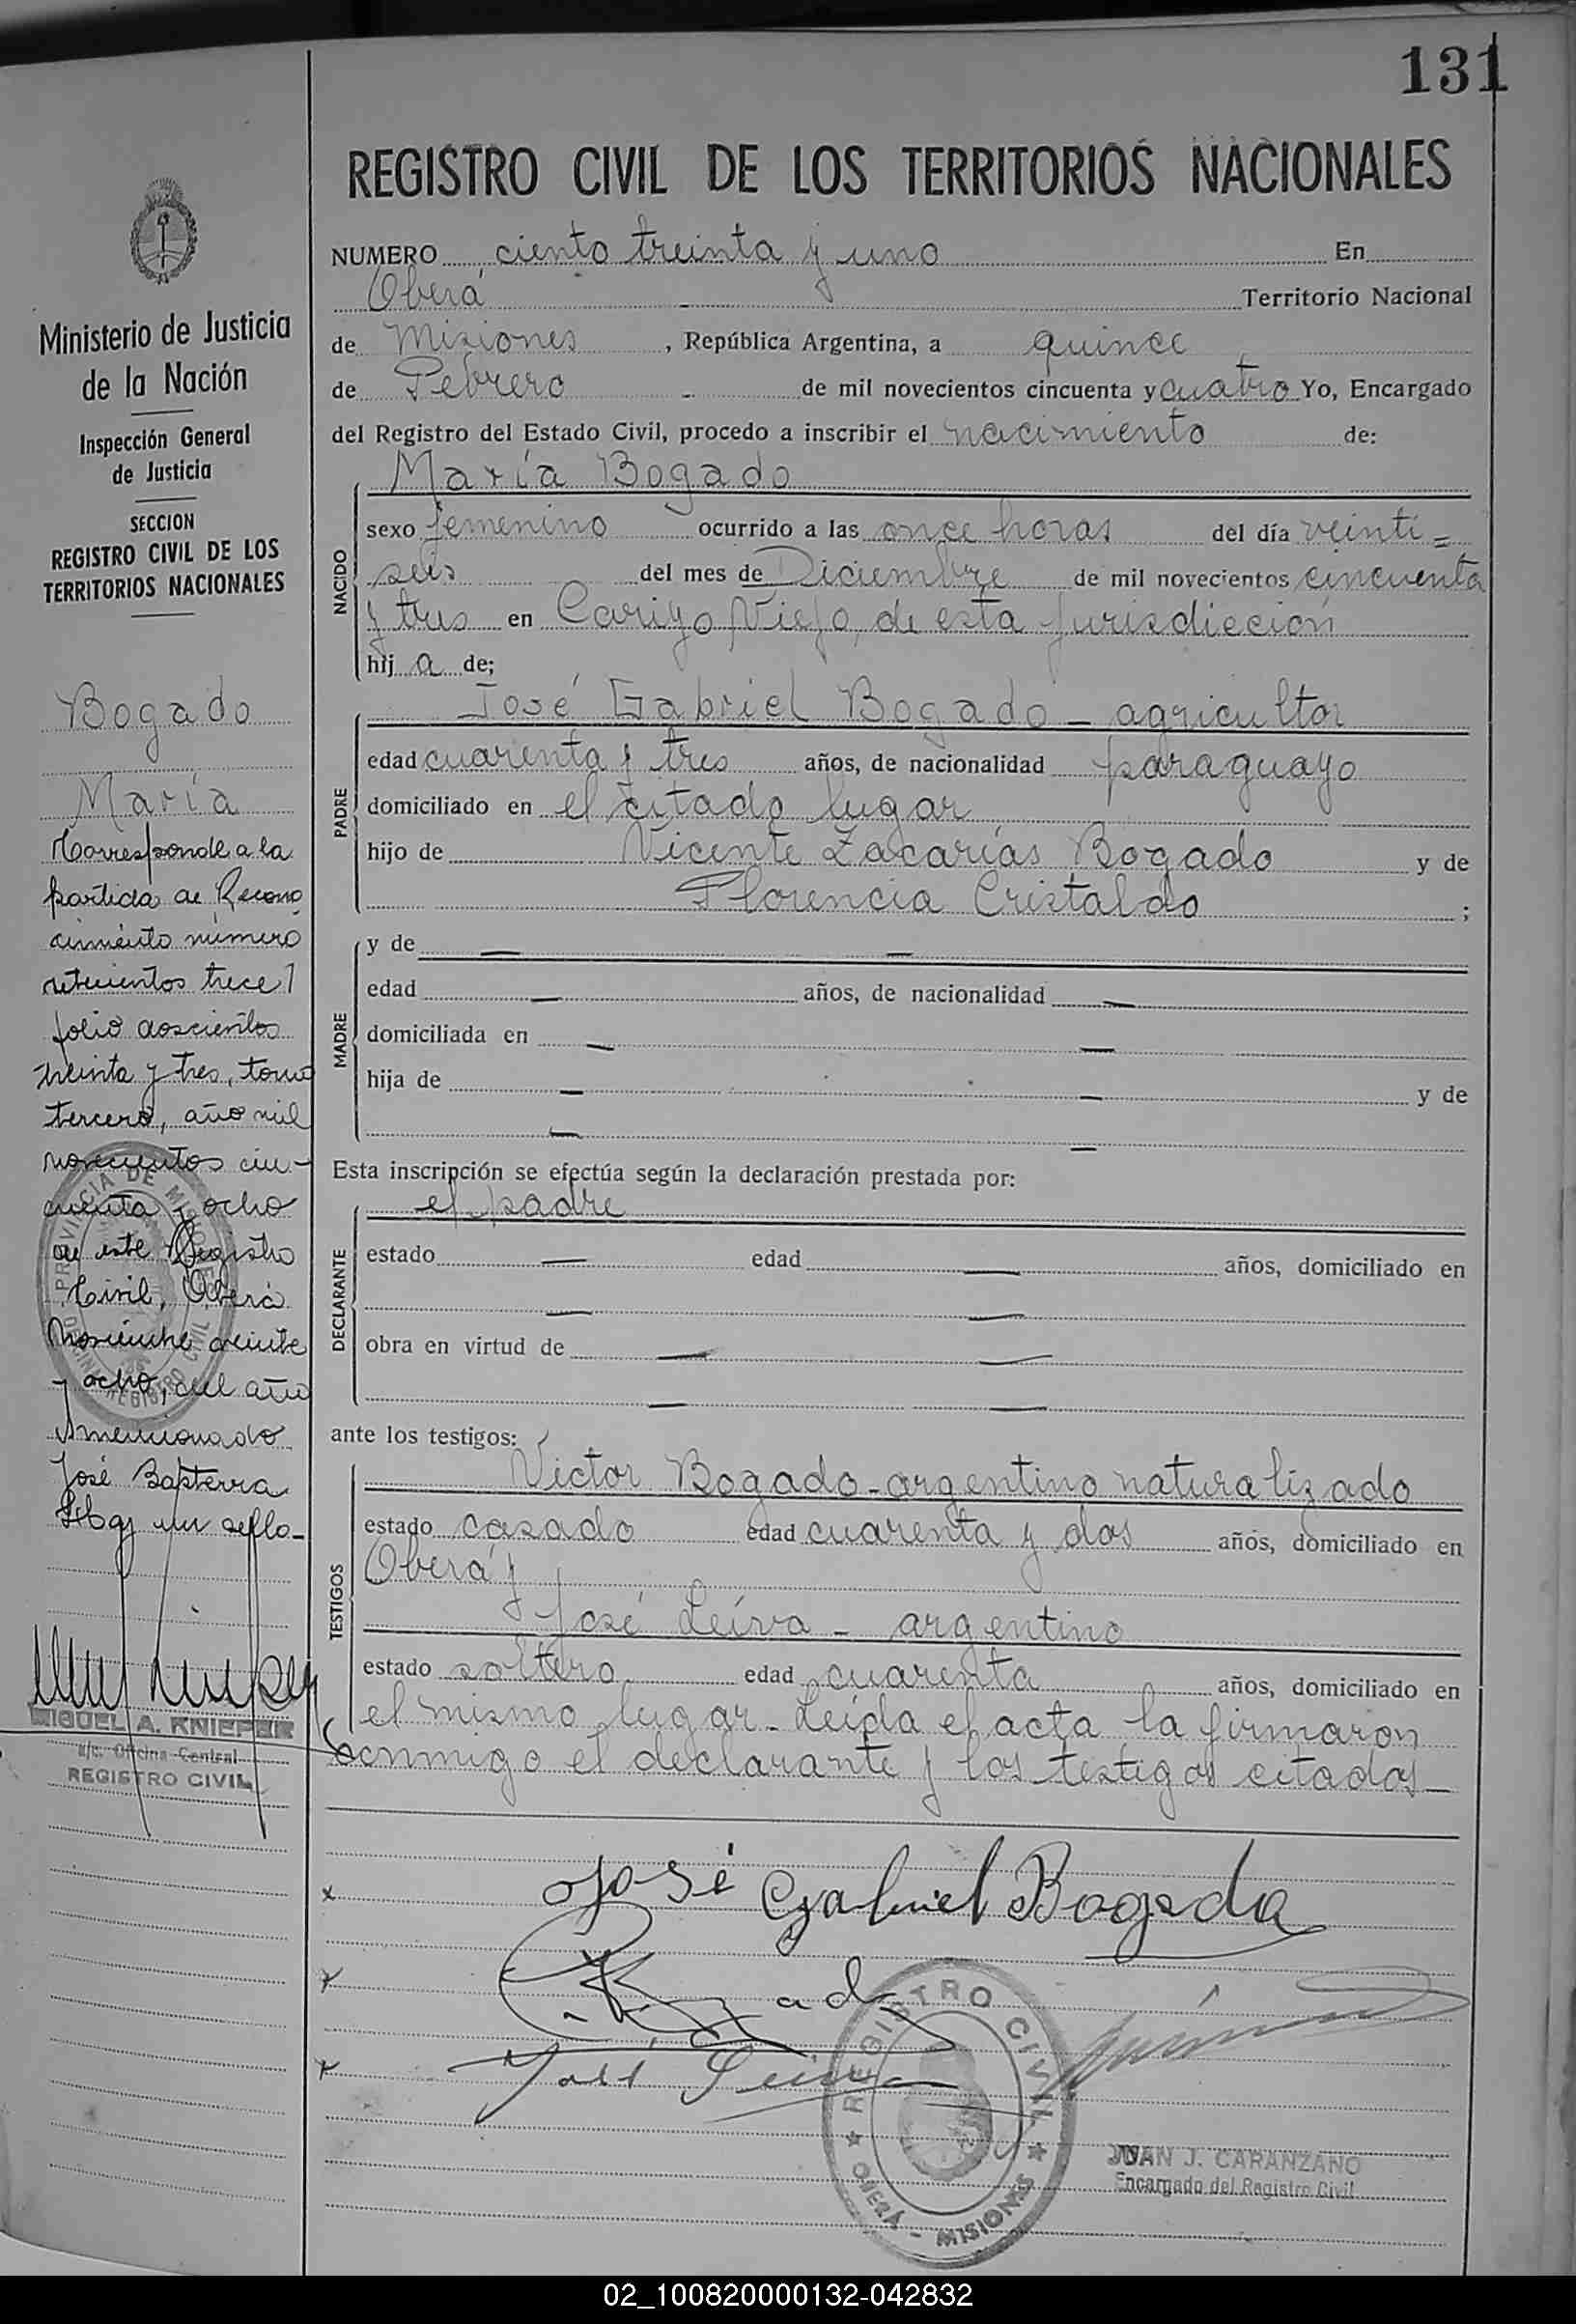 131
REGISTRO CIVIL DE LOS TERRITORIOS NACIONALES
NUMERO ciento treinta y uno En
Oberá Territorio Nacional
de Misiones , República Argentina, a quince
de Febrero de mil novecientos cincuenta y cuatro Yo, Encargado
del Registro del Estado Civil, procedo a inscribir el nacimiento de:
María Bogado
NACIDO
sexo femenino ocurrido a las once horas del día veinti=
seis del mes de Diciembre de mil novecientos cincuenta
y tres en Cariyo Viejo, de esta jurisdicción
hij a de;
José Gabriel Bogado - agricultor
PADRE
edad cuarenta y tres años, de nacionalidad paraguayo
domiciliado en el citado lugar
hijo de Vicente Zacarías Bogado y de
Florencia Cristaldo ;
MADRE
y de — —
edad — años, de nacionalidad —
domiciliada en — —
hija de — — y de
— —
Esta inscripción se efectúa según la declaración prestada por:
el padre
DECLARANTE
estado — edad — años, domiciliado en
— —
obra en virtud de — —
— —
ante los testigos:
Victor Bogado - argentino naturalizado
TESTIGOS
estado casado edad cuarenta y dos años, domiciliado en
Oberá y
José Leiva - argentino
estado soltero edad cuarenta años, domiciliado en
el mismo lugar. Leída el acta la firmaron
conmigo el declarante y los testigos citados—
José Gabriel Bogado
José Leiva
REGISTRO CIVIL
OBERA - MISIONES
JUAN J. CARANZANO
Encargado del Registro Civil
Ministerio de Justicia
de la Nación
Inspección General
de Justicia
SECCION
REGISTRO CIVIL DE LOS
TERRITORIOS NACIONALES
Bogado
María
Corresponde a la
partida de Recono
cimiento número
setecientos trece
folio doscientos
treinta y tres, tomo
tercero, año mil
novecientos cin-
cuenta y ocho
de este Registro
Civil, Oberá
Noviembre veinte
y ocho, del año
mencionado
José
un sello-
PROVINCIA DE MISIONES
REGISTRO CIVIL
MIGUEL A. KNIEPER
a/c. Oficina Central
REGISTRO CIVIL
02_100820000132-042832